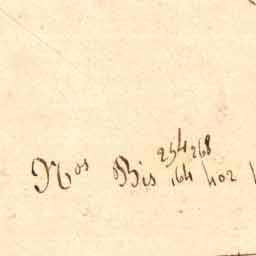 254 268
Nos Bis 164 402